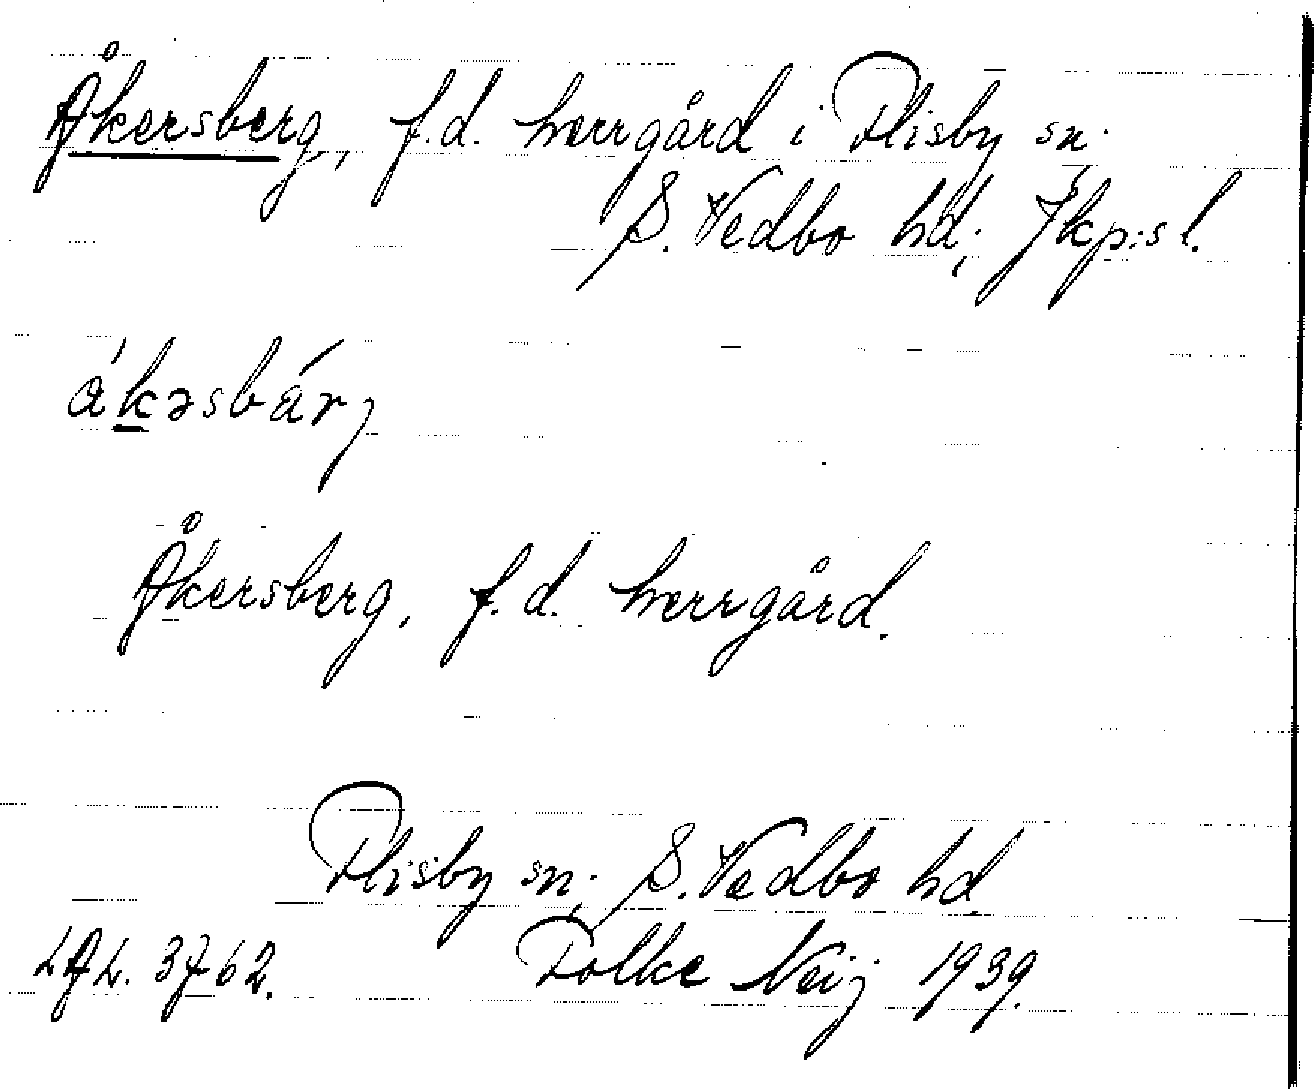 Åkersberg, f.d. herrgård i Flisby sn.
S. Vedbo hd; Jkp:s l.
ákəsbárj
Åkersberg, f.d. herrgård.
Flisby sn; S. Vedbo hd
LAL. 3762. Folke Neij 1939.